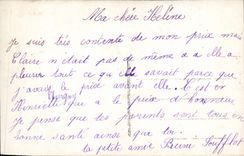 Ma chère Hélène
Je suis très contente de mon prix mais
Claire n était pas de même a elle a
pleurer tout ce qu elle savait parce que
j avais le prix avant elle. C est
Henriette que a le prix d honneur
Je pense que tes parents sont tous en
bonne santé ainsi que toi.
ta petite amie